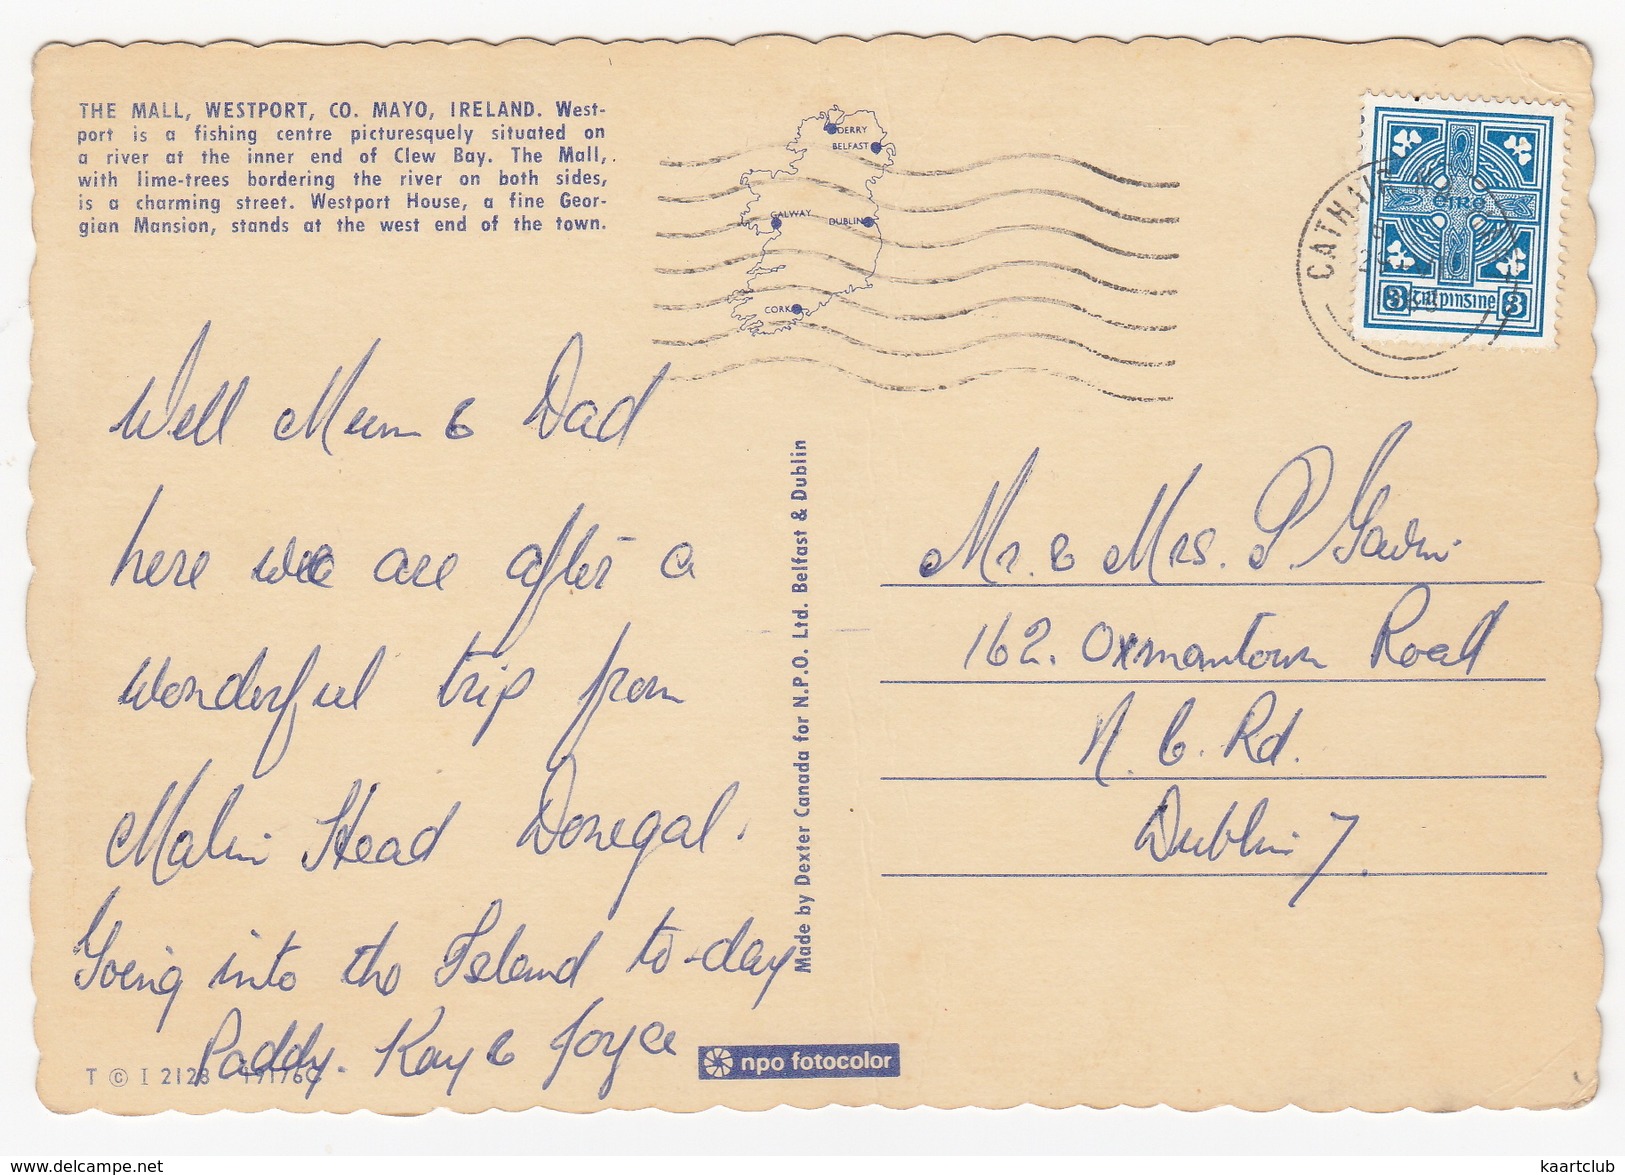 THE MALL, WESTPORT, CO. MAYO, IRELAND. West-
port is a fishing centre picturesquely situated on
a river at the inner end of Clew Bay. The Mall,
with lime-trees bordering the river on both sides,
is a charming street. Westport House, a fine Geor-
gian Mansion, stands at the west end of the town.
DERRY
BELFAST
GALWAY
DUBLIN
CORK
CATHAIR
éire
3 pinsine 3
Well Mum & Dad
here we are after a
wonderful trip from
Malin Head Donegal.
Going into the Island to-day
Paddy. Kay & Joyce
Made by Dexter Canada for N.P.O. Ltd. Belfast & Dublin
Mr. & Mrs. P Gavin
162. Oxmantown Road
N. C. Rd.
Dublin 7.
T © I 2128
npo fotocolor
www.delcampe.net
kaartclub